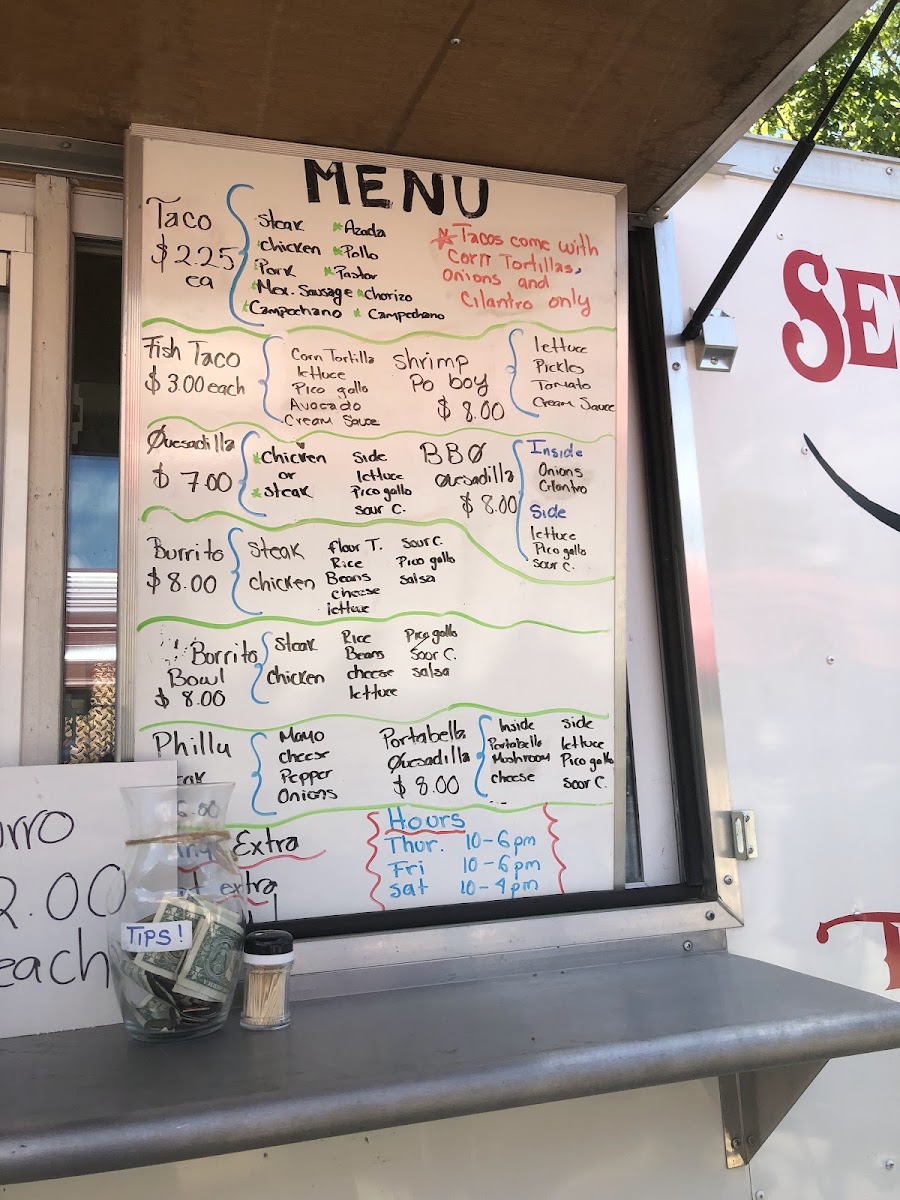 MENU
Taco
$2.25
ea
Steak * Azada
*Chicken * Pollo
*Pork * Pastor
*Mex. Sausage * Chorizo
*Campechano * Campechano
* Tacos come with
Corn Tortillas,
Onions and
Cilantro only
Fish Taco
$3.00 each
Corn Tortilla
lettuce
Pico gallo
Avocado
Cream Sauce
Shrimp
Po boy
$8.00
lettuce
Pickles
Tomato
Cream Sauce
Quesadilla
$7.00
*Chicken
or
*steak
Side
lettuce
Pico gallo
sour C.
BBQ
Quesadilla
$8.00
Inside
Onions
Cilantro
Side
lettuce
Pico gallo
sour C.
Burrito
$8.00
Steak
chicken
flour T.
Rice
Beans
cheese
lettuce
Sour C.
Pico gallo
salsa
Borrito
Bowl
$8.00
Steak
chicken
Rice
Beans
cheese
lettuce
Pico gallo
Sour C.
salsa
Philly
Mayo
cheese
Pepper
Onions
Portabella
Quesadilla
$8.00
Inside
Portabello
Mushroom
cheese
side
lettuce
Pico gallo
sour C.
Extra
extra
Hours
Thur. 10-6pm
Fri 10-6pm
Sat 10-4pm
urro
2.00
each
TIPS!
SE
T